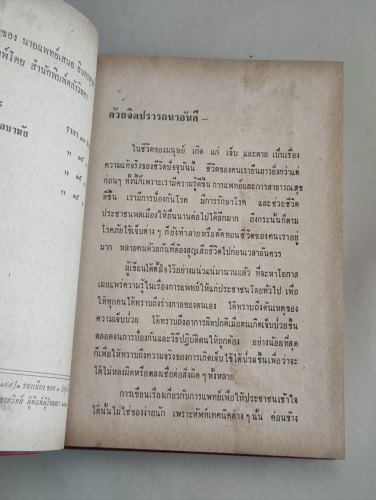 ของ นายแพทย์เสนอ อินทรสุขศรี
พ์โดย สำนักพิมพ์คลังวิทยา
อนามัย
ราคา
ด้วยจิตปรารถนาอันดี –
ในชีวิตของมนุษย์ เกิด แก่ เจ็บ และตาย เป็นเรื่อง
ความแท้จริงของชีวิตปัจจุบันนี้ ชีวิตของคนเรายืนยาวยิ่งกว่าแต่
ก่อนๆ ทั้งนี้ก็เพราะเรามีความรู้ดีขึ้น การแพทย์และการสาธารณสุข
ดีขึ้น เรามีการป้องกันโรค มีการรักษาโรค และช่วยชีวิต
ประชาชนพลเมืองให้ยืนนานต่อไปได้อีกมาก ถึงกระนั้นก็ตาม
โรคภัยไข้เจ็บต่าง ๆ ก็ยังทำลายหรือตัดทอนชีวิตของคนเราอยู่
มาก หลายคนด้วยกันที่ต้องสูญเสียชีวิตไปก่อนเวลาอันควร
ผู้เขียนได้ตั้งใจไว้อย่างแน่วแน่มานานแล้ว ที่จะหาโอกาส
เผยแพร่ความรู้ในเรื่องการแพทย์ให้แก่ประชาชนโดยทั่วไป เพื่อ
ให้ทุกคนได้ทราบถึงร่างกายของตนเอง ได้ทราบถึงต้นเหตุของ
ความเจ็บป่วย ได้ทราบถึงอาการผิดปกติเมื่อตนเกิดเจ็บป่วยขึ้น
ตลอดจนการป้องกันและวิธีปฏิบัติตนให้ถูกต้อง อย่างน้อยที่สุด
ก็เพื่อให้ทราบถึงความจริงของการเกิดเจ็บไข้ได้ป่วยขึ้นเพื่อว่าจะ
ได้ไม่หลงผิดหรือหลงเชื่อต่อสิ่งผิด ๆ ทั้งหลาย
การเขียนเรื่องเกี่ยวกับการแพทย์เพื่อให้ประชาชนเข้าใจ
ได้นั้นไม่ใช่ของง่ายนัก เพราะศัพท์เทคนิคต่าง ๆ นั้น ค่อนข้าง